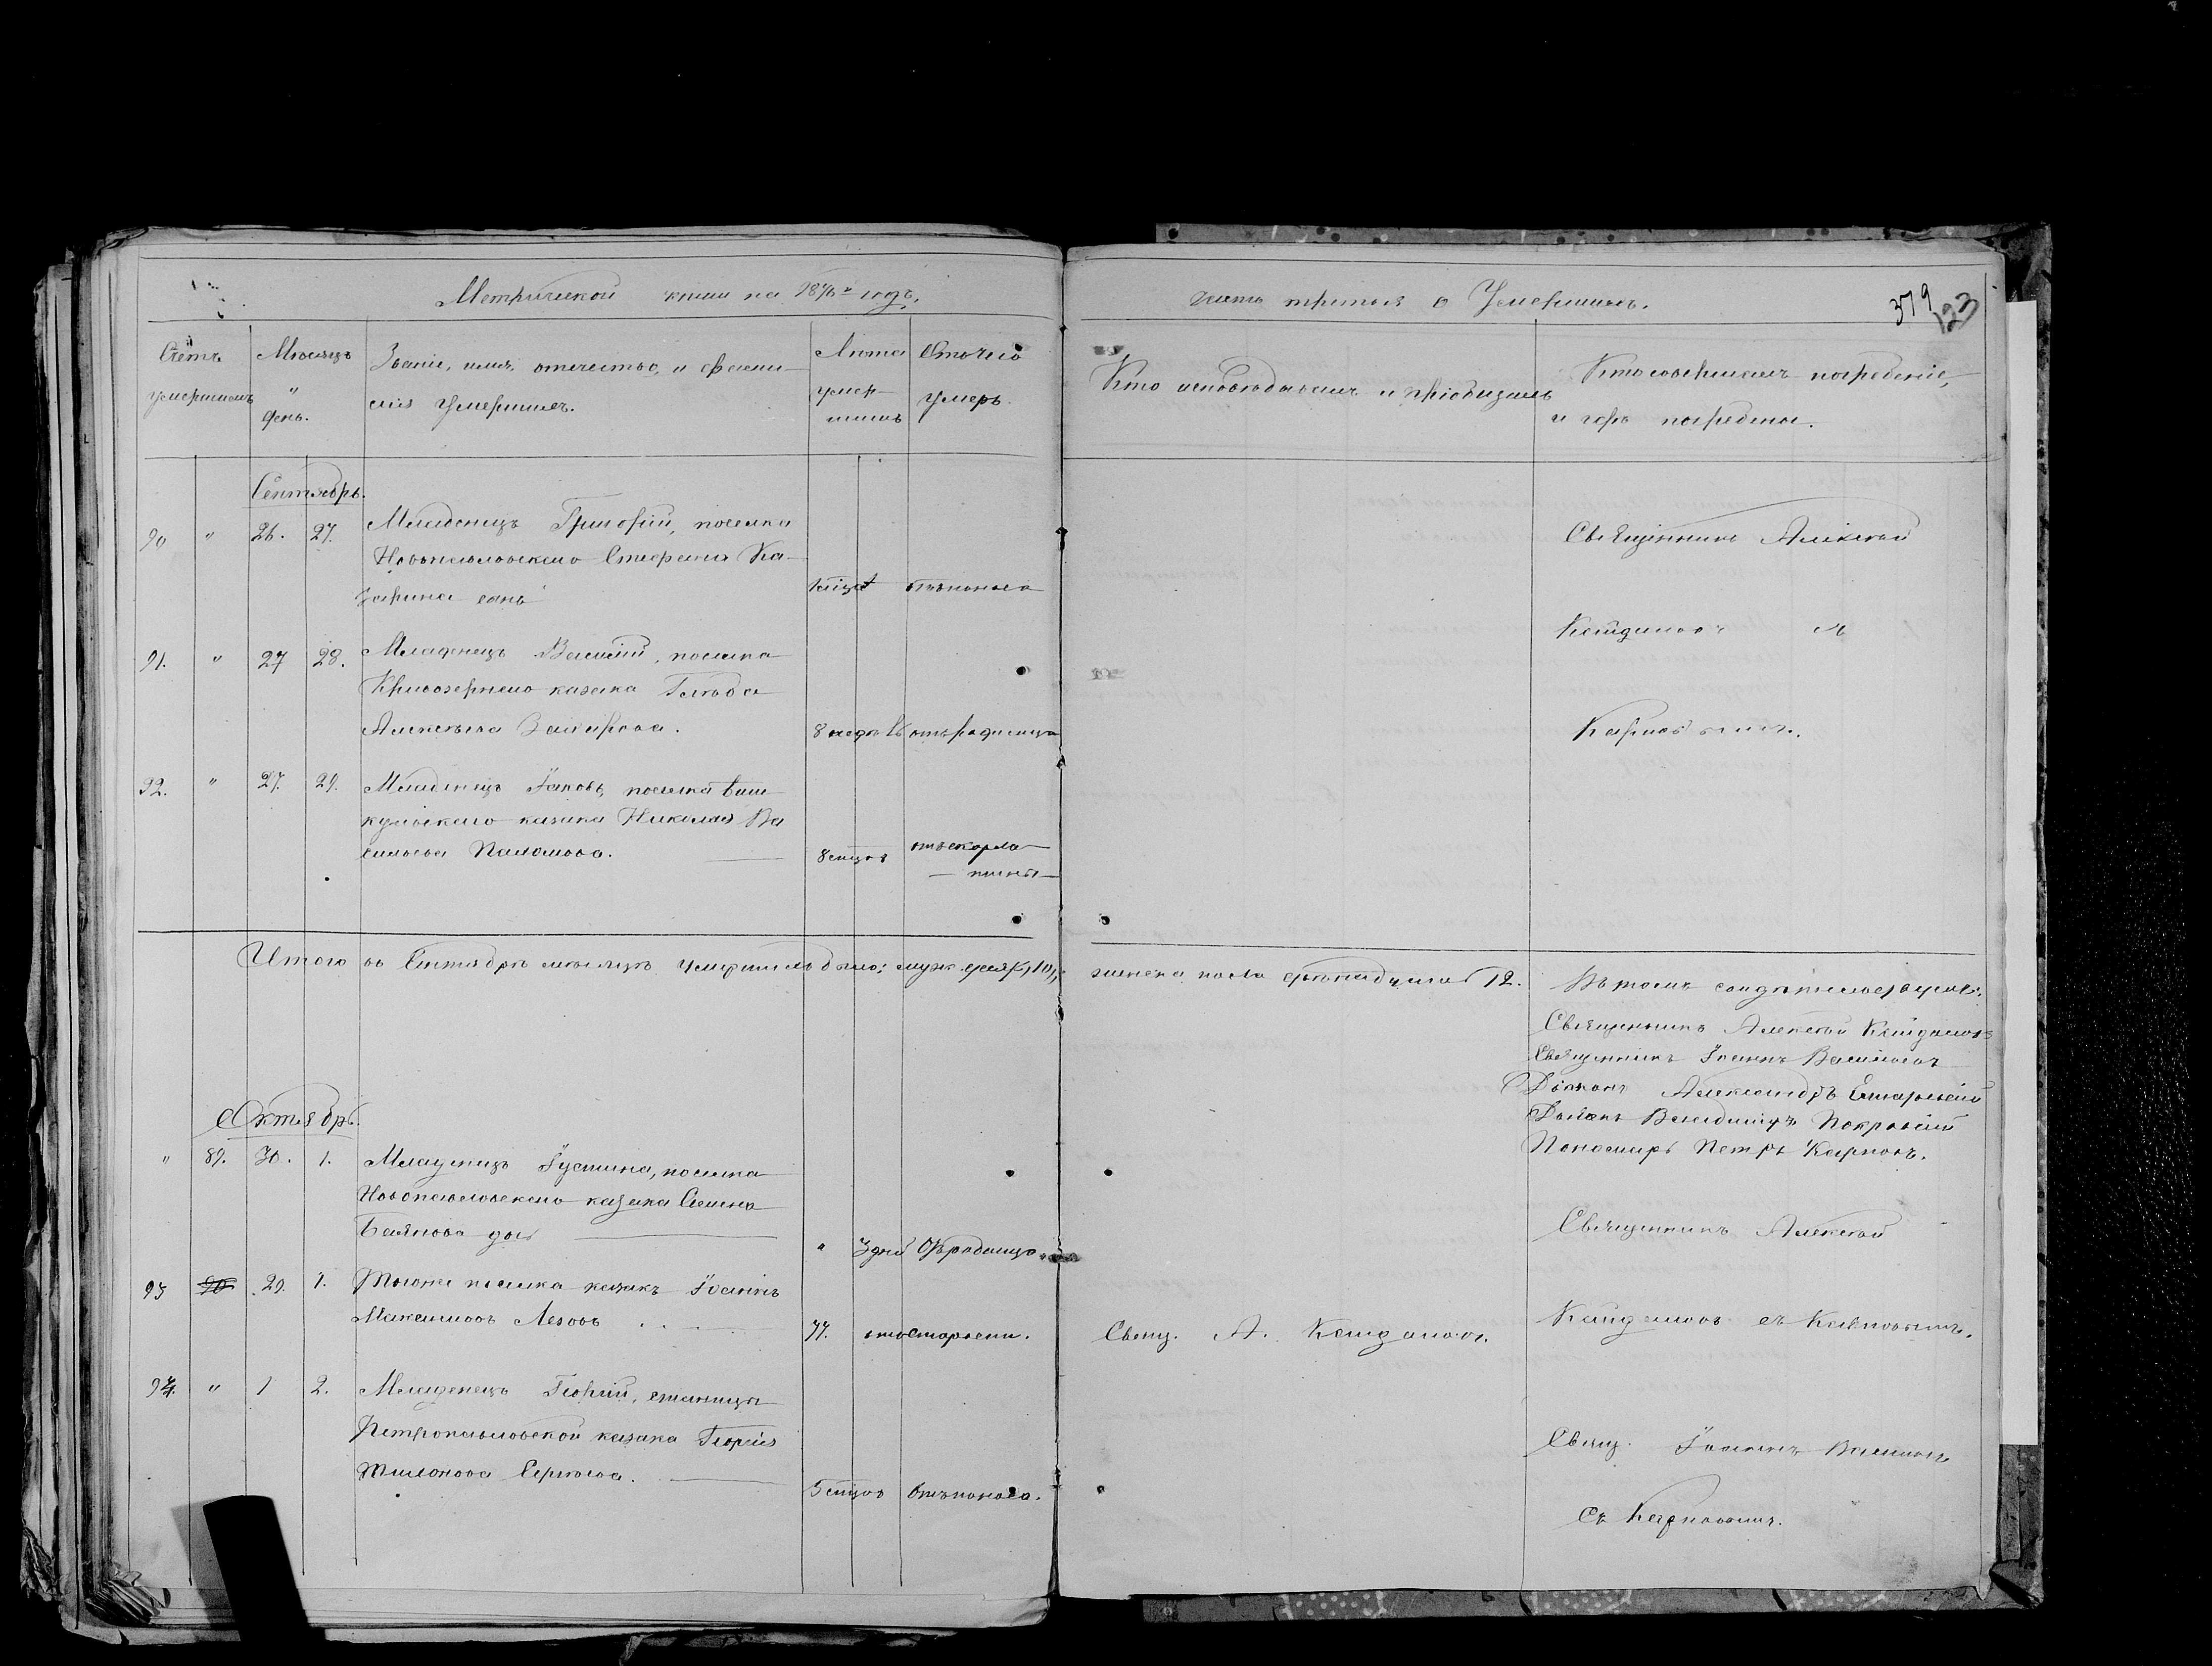 Метрической книги на 1876й годъ,
часть третья о Умершихъ.
379
123
Счетъ умершихъ
Мѣсяцъ и день.
Званіе, имя, отечество, и фамилія Умершихъ.
Лѣта умершихъ
Отъ чего умеръ.
Кто исповѣдывалъ и пріобщалъ
Кто совершалъ погребеніе, и гдѣ погребены.
Сентябрь.
90 " 26. 27. Младенецъ Григорій, поселка
Новопавловскаго Стефана Ка-
зарина сынъ
отъ поноса
Священникъ Алексѣй
Кейдановъ съ
Карповымъ.
91. " 27 28. Младенецъ Василій, поселка
Кривоозернаго казака Глѣба
Алексѣева
8 недѣль отъ родимца
92. " 27. 29. Младенецъ Іаковъ, поселка Баш
кульскаго казака Николая Ва
сильева
8 мцовъ отъ скарла-
тины
Итого въ Сентябрѣ мѣсяцѣ умершихъ было: муж. 10,
женска пола двѣнадцать 12.
Въ томъ свидѣтельствуютъ:
Священникъ Алексѣй Кейдановъ
Священникъ Іоаннъ
Діаконъ Александръ
Діаконъ Владиміръ Покровскій
Пономарь Петръ Карповъ.
Октябрь.
" 89. 30. 1. Младенецъ Іустина, поселка
Новопавловскаго казака Семена
Баянова дочь
" 3 дней Отъ родимца
Священникъ Алексѣй
Кейдановъ съ Карповымъ.
93 90 29. 1. Тогоже поселка казакъ Іоаннъ
Максимовъ Лезовъ
77. отъ старости.
Свящ. А. Кейдановъ.
94. " 1 2. Младенецъ Георгій, станицы
Петропавловской казака Георгія
Сергѣева.
5 мцовъ Отъ поноса.
Свящ. Іоаннъ
Съ Карповымъ.